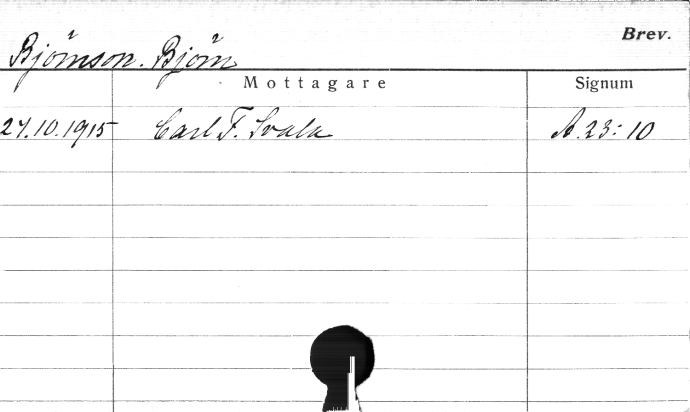 Brev.
Björnson. Björn
Mottagare Signum
27.10.1915 Carl F. Svala A.23:10